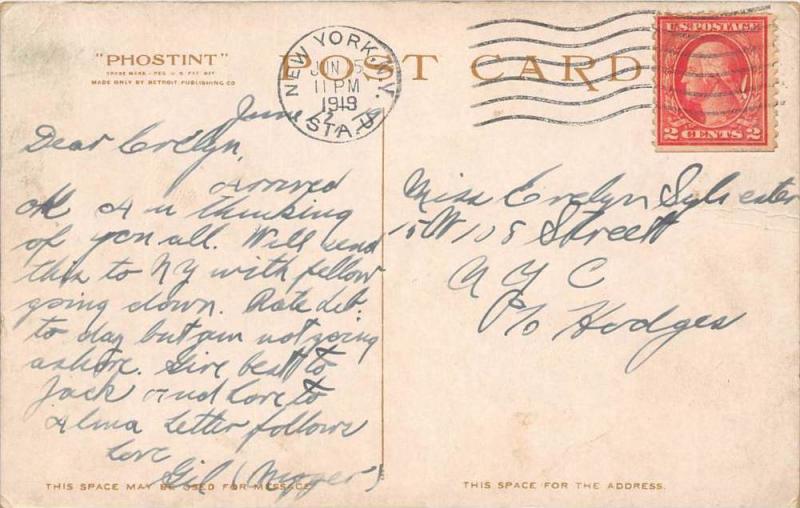 "PHOSTINT"
TRADE MARK - REG. U.S. PAT. OFF.
MADE ONLY BY DETROIT PUBLISHING CO
POST CARD
NEW YORK, N.Y.
JUN 5
11 PM
1919
STA.
U.S. POSTAGE
2 CENTS 2
June
Dear Evelyn,
Arrived
OK & thinking
of you all. Will send
this to NY with fellow
going down. Rate deb.
to day but am not going
ashore. Give best to
Jack and Love to
Alma Letter follows
Love
Gil
Miss Evelyn Sylvester
15 W 108 Street
N Y C
C/o Hodges
THIS SPACE MAY BE USED FOR MESSAGE
THIS SPACE FOR THE ADDRESS.